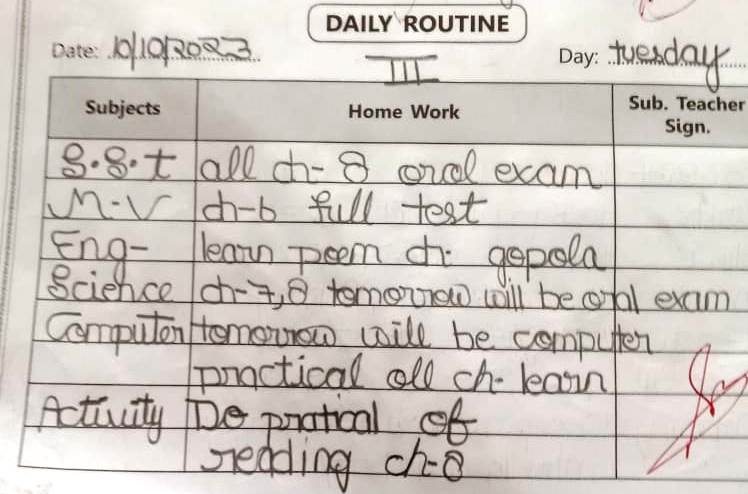 DAILY ROUTINE
Date: 10/10/2023 III Day: tuesday
Subjects Home Work Sub. Teacher Sign.
S.S.t all ch- 8 oral exam
M.V ch-6 full test
Eng- learn poem ch: gopola
Science ch-7,8 tomorrow will be oral exam
Computer tomorrow will be computer
practical all ch- learn
Activity Do pratical of
reading ch-8